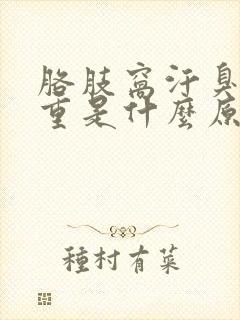 胳肢窩汗臭
重是什麼原
種村有菜